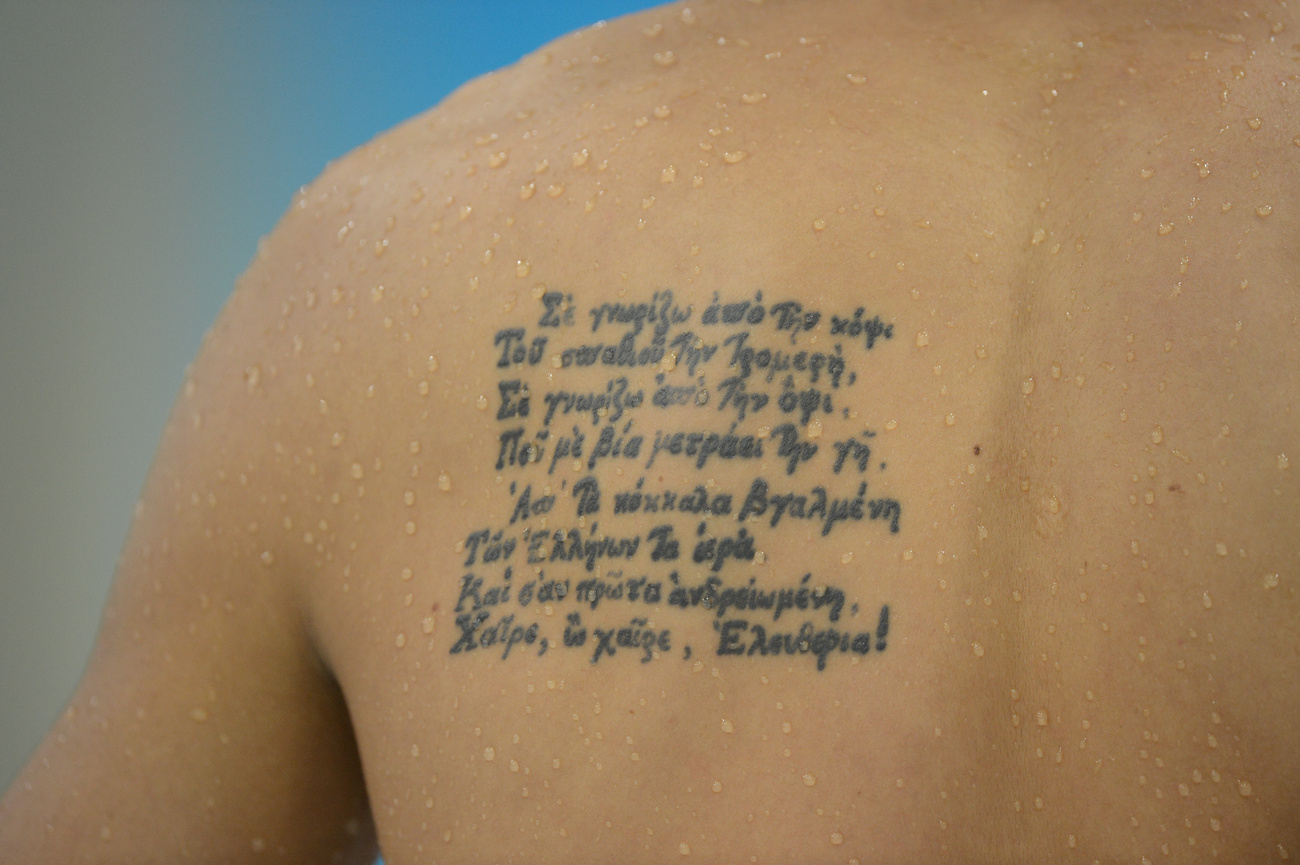 Σὲ γνωρίζω ἀπὸ τὴν κόψι
Τοῦ σπαθιοῦ τὴν τρομερή,
Σὲ γνωρίζω ἀπὸ τὴν ὄψι,
Ποῦ μὲ βία μετράει τὴν γῆ.
Ἀπ' τὰ κόκκαλα βγαλμένη
Τῶν Ἑλλήνων τὰ ἱερά,
Καὶ σὰν πρῶτα ἀνδρειωμένη,
Χαῖρε, ὢ χαῖρε, Ἐλευθεριά!